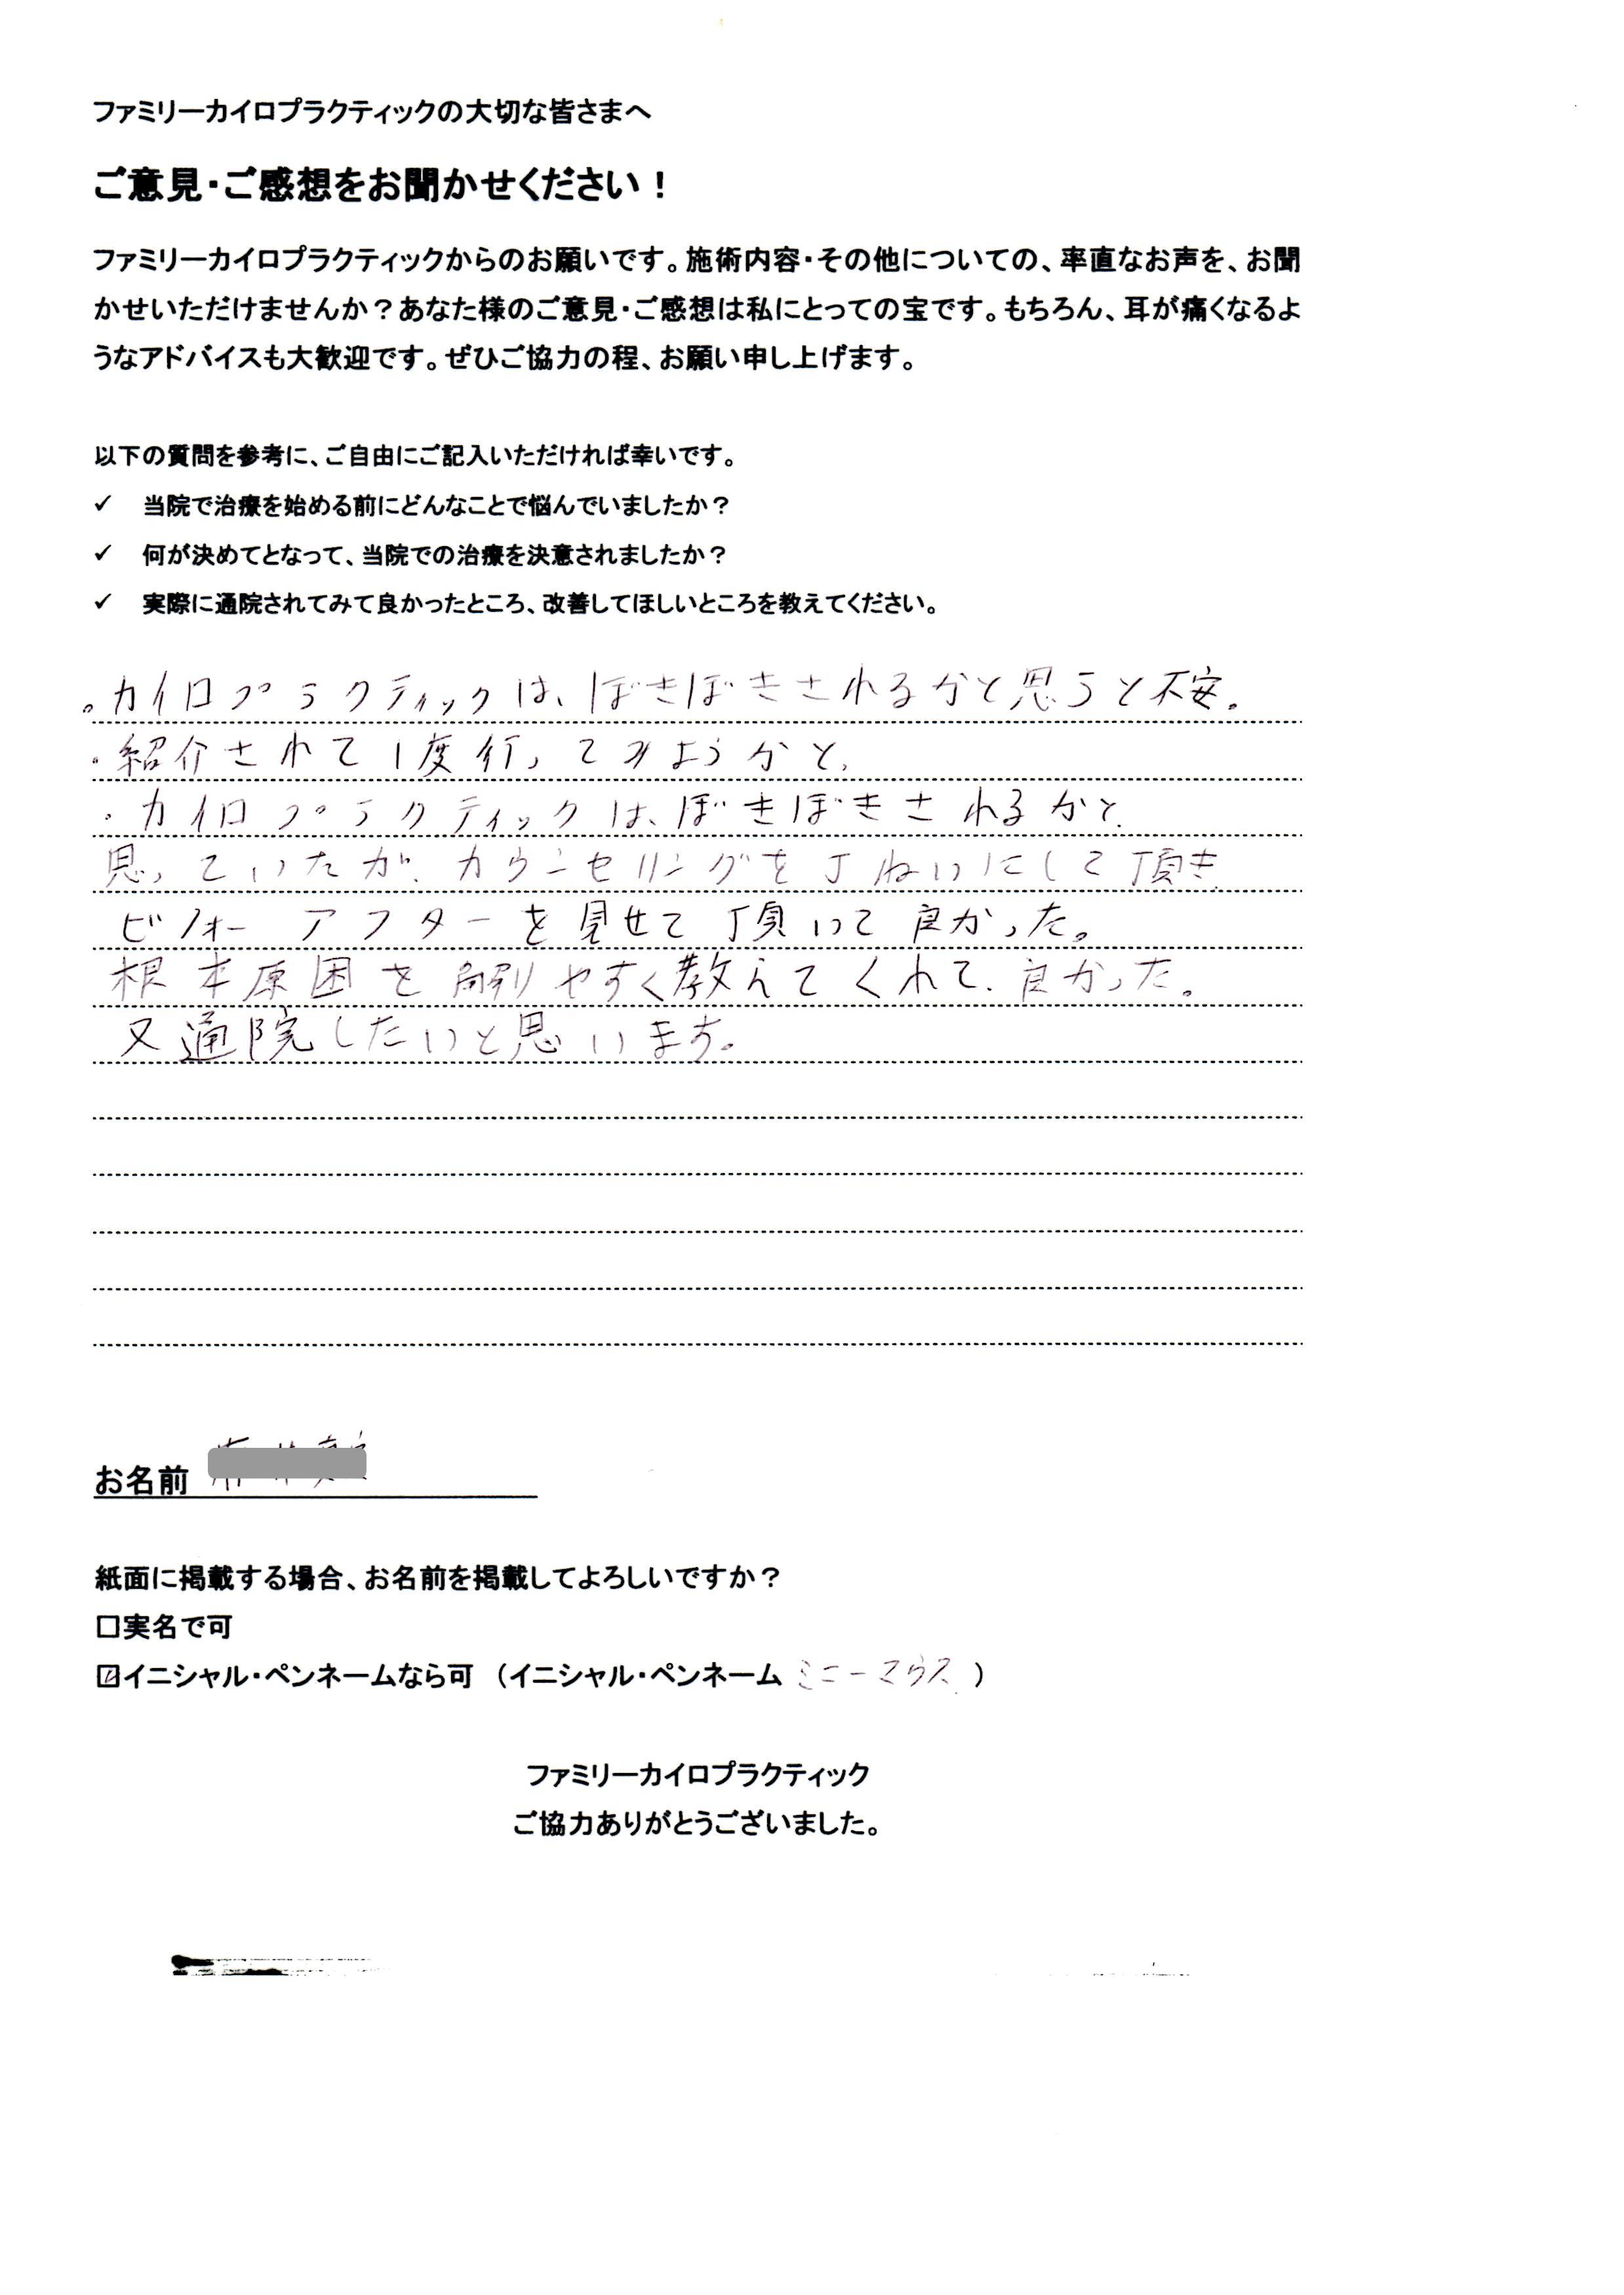 ファミリーカイロプラクティックの大切な皆さまへ
ご意見・ご感想をお聞かせください！
ファミリーカイロプラクティックからのお願いです。施術内容・その他についての、率直なお声を、お聞
かせいただけませんか？あなた様のご意見・ご感想は私にとっての宝です。もちろん、耳が痛くなるよ
うなアドバイスも大歓迎です。ぜひご協力の程、お願い申し上げます。
以下の質問を参考に、ご自由にご記入いただければ幸いです。
✓ 当院で治療を始める前にどんなことで悩んでいましたか？
✓ 何が決めてとなって、当院での治療を決意されましたか？
✓ 実際に通院されてみて良かったところ、改善してほしいところを教えてください。
。カイロプラクティックは、ぼきぼきされるかと思うと不安。
・紹介されて1度行ってみようかと、
・カイロプラクティックは、ぼきぼきされるかと
思っていたが、カウンセリングを丁ねいにして頂き、
ビフォーアフターを見せて頂いて良かった。
根本原因を解りやすく教えてくれて、良かった。
又通院したいと思います。
お名前
紙面に掲載する場合、お名前を掲載してよろしいですか？
□実名で可
☑イニシャル・ペンネームなら可 （イニシャル・ペンネーム ミニーマウス ）
ファミリーカイロプラクティック
ご協力ありがとうございました。